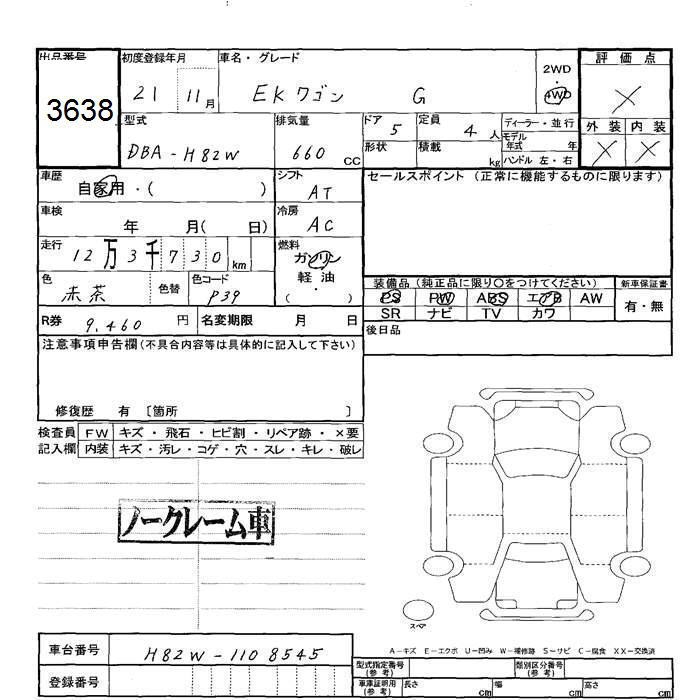 出品番号
3638
初度登録年月
21 11月
車名・グレード
EKワゴン G
2WD
・
4WD
評価点
×
外装 内装
× ×
型式
DBA-H82W
排気量
660 CC
ドア 5
形状
定員 4 人
積載 kg
ディーラー・並行
モデル年式 年
ハンドル 左・右
車歴
自家用・( )
シフト
AT
セールスポイント(正常に機能するものに限ります)
車検
年 月( 日)
冷房
AC
走行
12万3千730km
燃料
ガソリン
軽油
( )
色
赤茶
色替
色コード
P39
装備品(純正品に限り○をつけてください)
PS PW ABS エアB AW
SR ナビ TV カワ
新車保証書
有・無
R券 9,460 円
名変期限 月 日
後日品
注意事項申告欄(不具合内容等は具体的に記入して下さい)
修復歴 有 〔箇所 〕
検査員記入欄
FW キズ・飛石・ヒビ割・リペア跡・×要
内装 キズ・汚レ・コゲ・穴・スレ・キレ・破レ
ノークレーム車
スペア
A-キズ E-エクボ U-凹み W-補修跡 S-サビ C-腐食 XX-交換済
車台番号 H82W-1108545
登録番号
型式指定番号(参考)
類別区分番号(参考)
車庫証明用(参考) 長さ cm 幅 cm 高さ cm